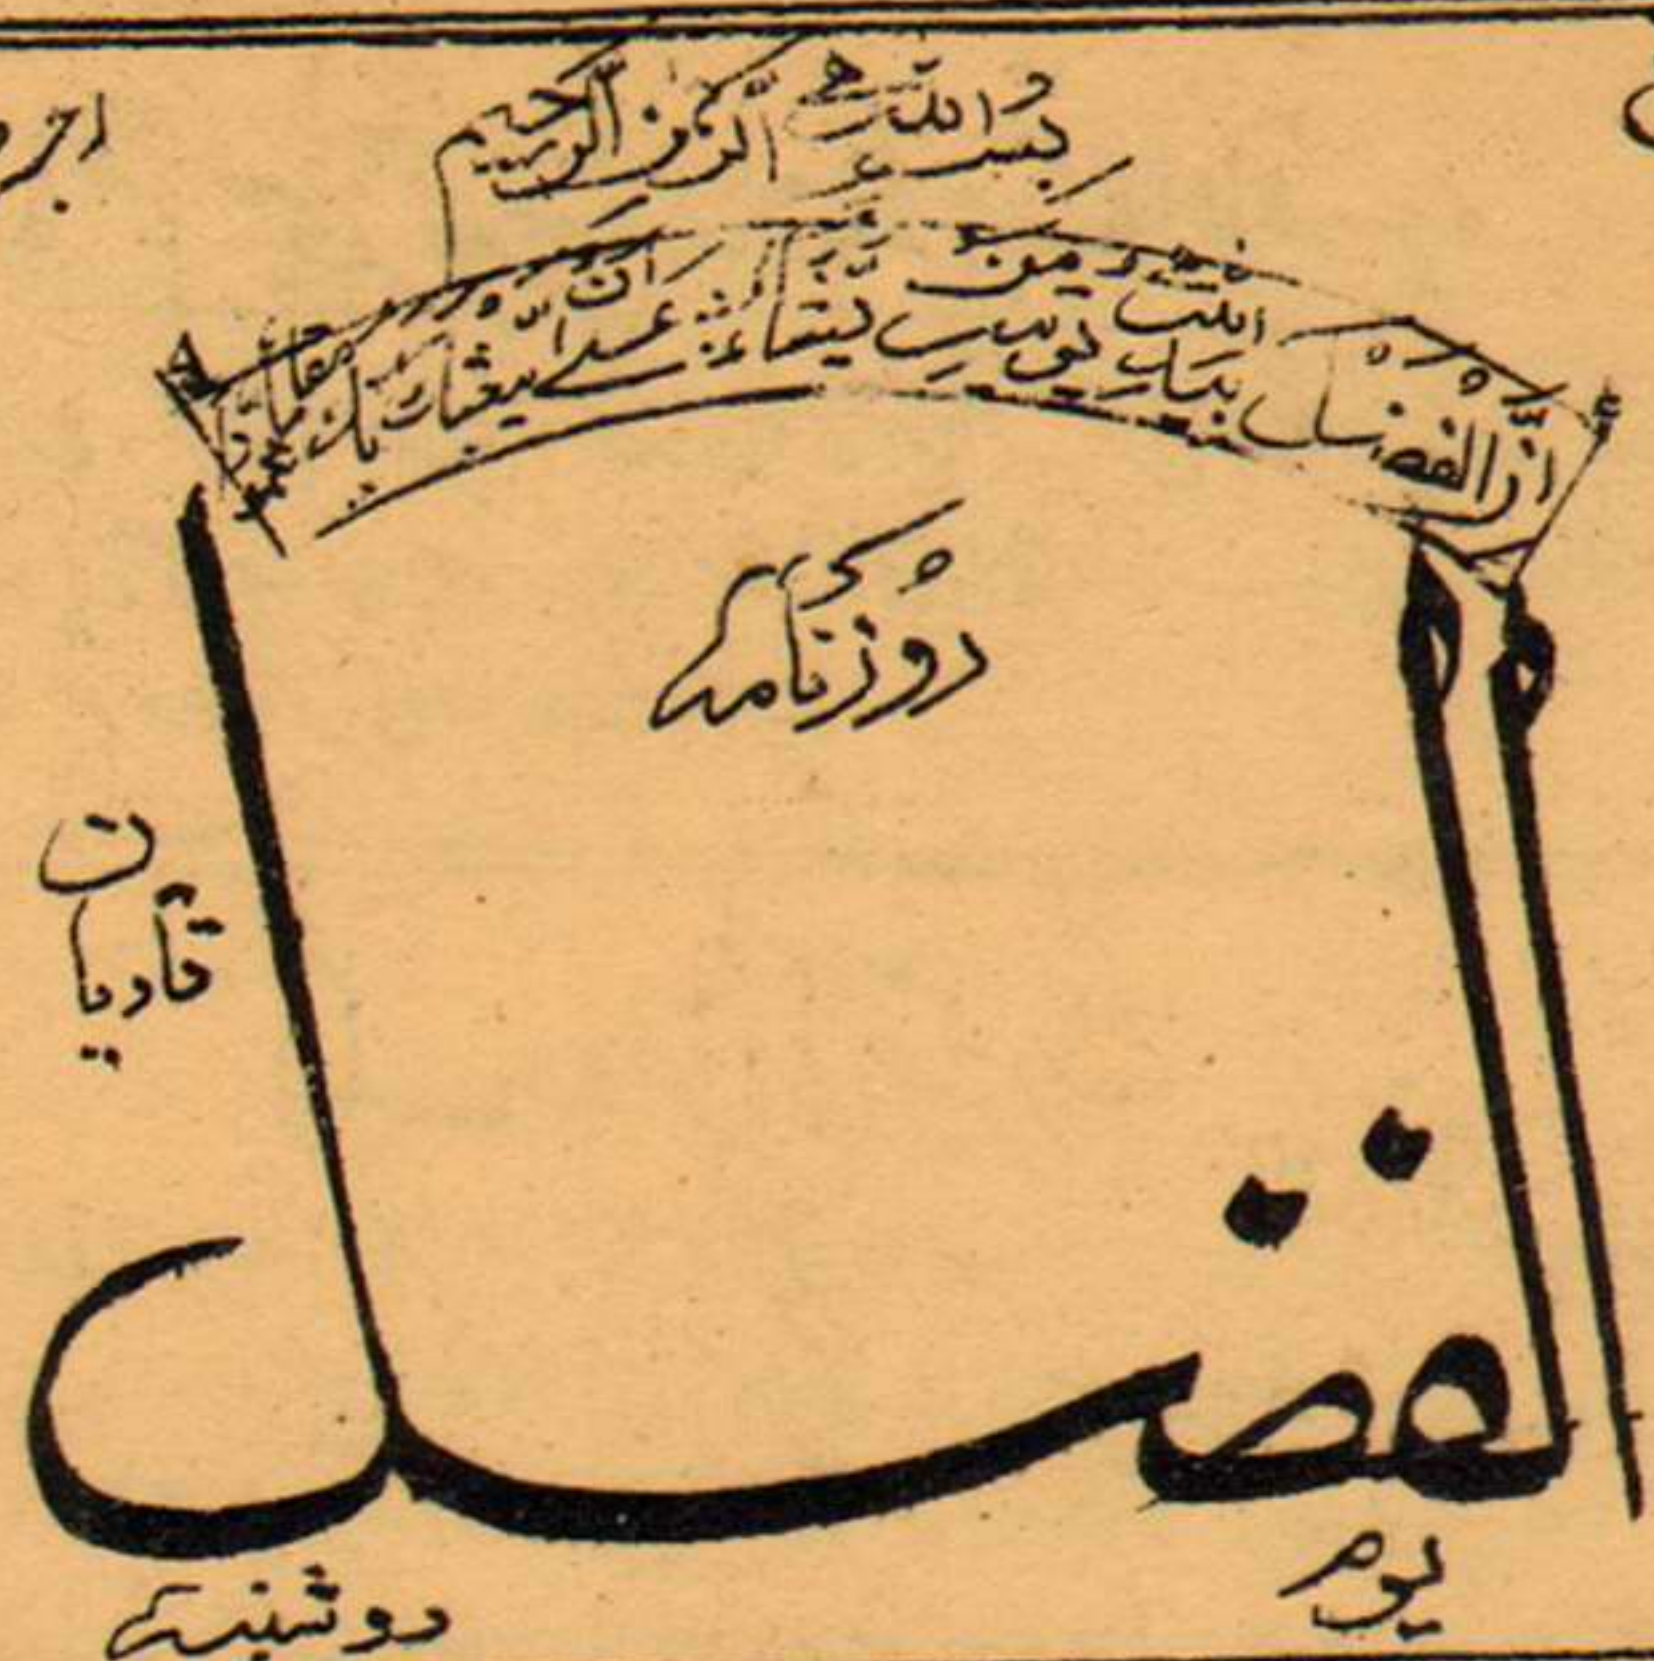 بسم اللہ الرحمن الرحیم
ان الفضل بید اللہ یوتیہ من یشاء عسے ان یبعثک ربک مقاما محمودا
روزنامہ
قادیان
الفضل
یوم
دوشنبہ